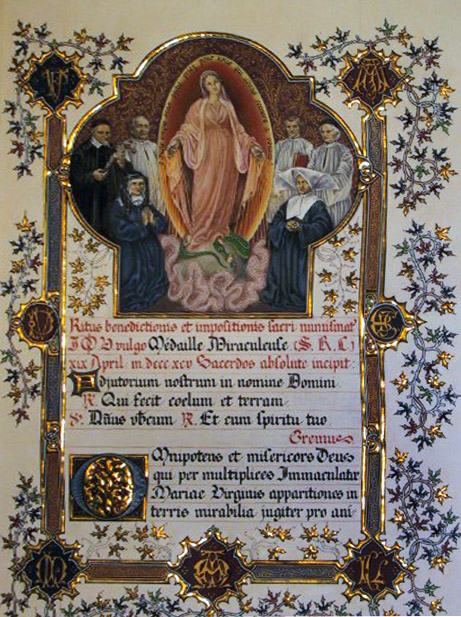 Ritus benedictionis et impositionis sacri numismat
vulgo Médaille Miraculeuse (S. R. C.)
xix April. m dccc xcv Sacerdos absolute incipit.
Adjutorium nostrum in nomine Domini
R. Qui fecit coelum et terram
Dñus vbcum R. Et cum spiritu tuo
Oremus
Omnipotens et misericors Deus
qui per multiplices Immaculatæ
Mariae Virginis apparitiones in
terris mirabilia jugiter pro ani-